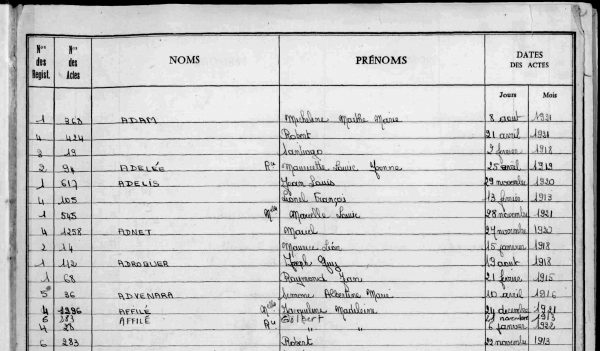 Nos des Regist. Nos des Actes NOMS PRÉNOMS DATES DES ACTES
Jours Mois
1 368 ADAM Micheline Marthe Marie 8 août 1921
4 424 Robert 21 avril 1921
3 19 Santiago 9 février 1918
2 94 ADELÉE Marcelle Louise Yvonne 25 avril 1919
1 617 ADELIS Jean Louis 29 novembre 1920
4 105 Lionel François 13 février 1913
1 545 Marcelle Louise 28 novembre 1921
4 1258 ADNET Marcel 27 novembre 1920
2 14 Maurice Léon 15 janvier 1918
1 112 ADROGUER Joseph Guy 19 août 1918
1 68 Raymond Jean 21 février 1915
5 36 ADVENARA Simone Albertine Marie 10 avril 1916
4 1396 AFFILÉ Jacqueline Madeleine 24 décembre 1921
6 283 AFFILÉ Gilbert 21 novembre 1913
4 28 " " 6 janvier 1922
6 283 Robert 22 novembre 1913